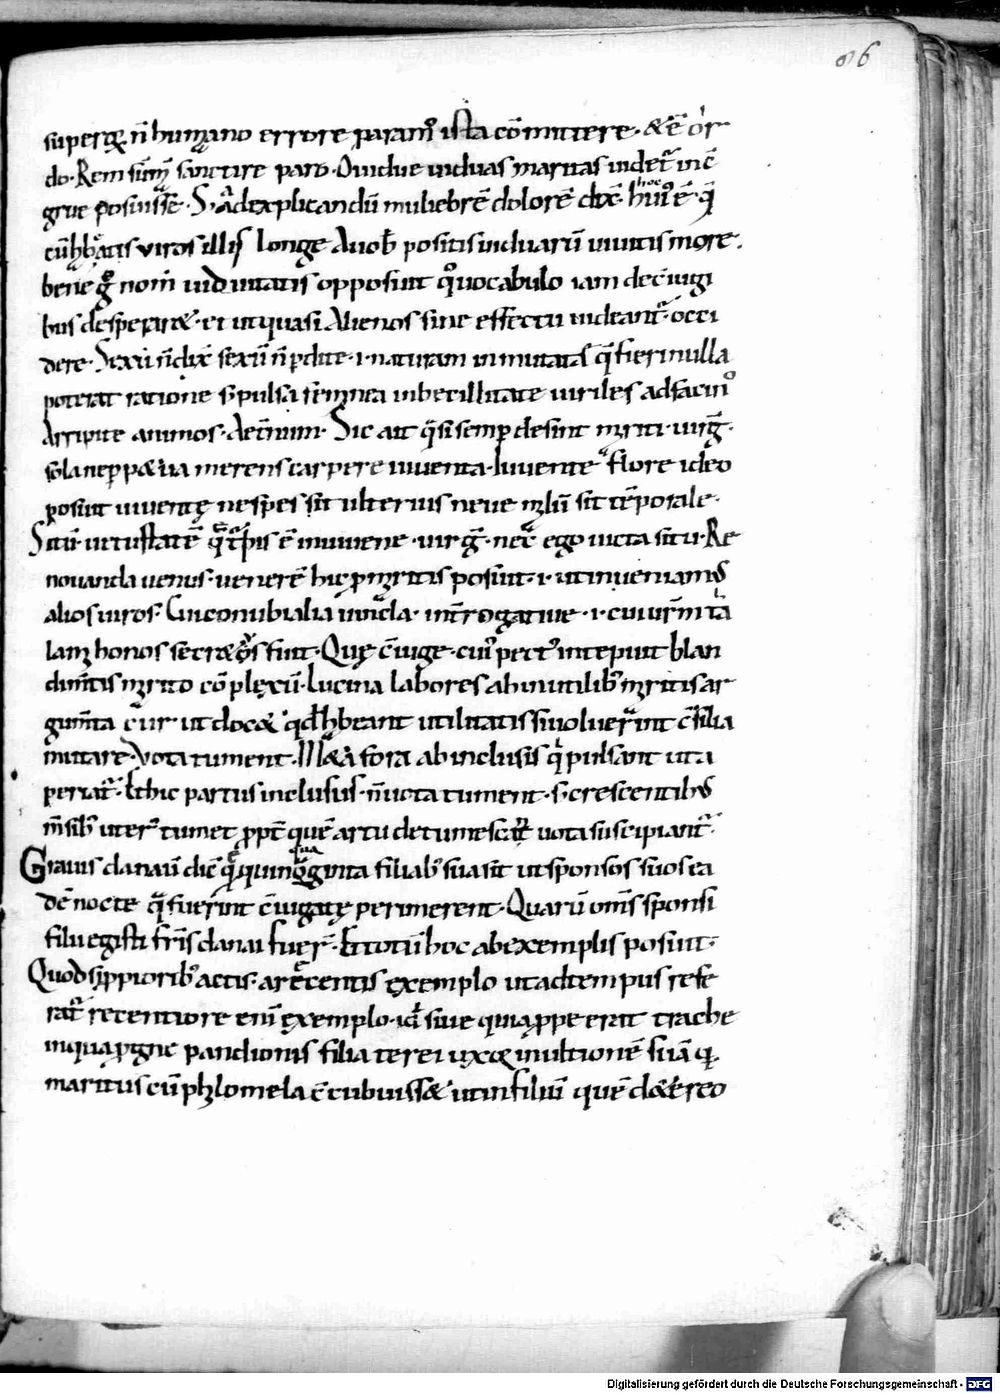 86
superꝗ n̄ humano errore paramꝰ ista cōmittere · & ē or
do · Rem sūmā sanctire paro · Ouidue uiduas maritas uidet̄ inc̄
grue posuisse · S; ad explicandū muliebrē dolorē dix̄ · huiꝰ ē · q̄
cū hbatis viros illis longe Auob̄ positis induarū uiuitis more ·
bene g̊ nom̄ uiduitatis opposuit q̊ uocabulo iam dec̄iugi
bus desperar& · et ut quasi Alienos sine effectu uideant̄ · occi
dere · Sexū n̄ dix̄ sexū n̄ pdite · i · naturam inmutata q̄ fieri nulla
poterat ratione s; pulsa feminea inbecillitate uiriles ad facinꝰ
Arripite animos · Aet̄num · Sic ait q̄si semp desint mariti · uirḡ ·
sola ne perp&ua merens carpere iuuenta · Iuuente flore ideo
posuit iuuentę ne spes sit ulterius neue malū sit tēporale ·
Sitū · uetustatē q̄ tp̄is ē inuiuene · uirḡ · nec̄ ego uicta situ · Re
nouanda uenus · uenerē hic p maritis posuit · i · ut inueniamꝰ
alios uiros · Cui conubialia uincla · int̄rogatiue · i · cui uirm̄ tā
lam honos secr&os sint · Quę c̄iuge · cuiꝰ pectꝰ intepuit blan
dim̄tis marito cōplexū · Lucina labores ab inutilibꝰ maritis ar
gum̄ta cur ut doc& qd hbeant utilitatis si uoluerint c̄silia
mutare · Vota tument · M&afora ab inclusis q̄ pulsant ut a
periat̄ · Et hic partus inclusus · n̄ uota tument · s; crescentibꝰ
m̄sibꝰ uterꝰ tumet ꝓpt̄ quē artu detumescat̄ uota suscipiant̄ ·
Grauis danaū dic̄ q̄ quinquaginta filiabꝰ suasit ut sponsos suos ea
dē nocte q̄ fuerint c̄iugatę perimerent · Quarū om̄s sponsi
filii egisti fr̄is danai fuer̄ · Et totū hoc ab exemplis posuit ·
Quod si prioribꝰ actis · a recentis exemplo ut ad tempus refe
rat̄ recentiore enī exemplo · id siue quia prope erat trache
in qua ꝓgne pandionis filia terei uxor in ultionē suā q̄
maritus cū phlomela c̄cubuiss& ut in filiū quē d& ereo
Digitalisierung gefördert durch die Deutsche Forschungsgemeinschaft - DFG